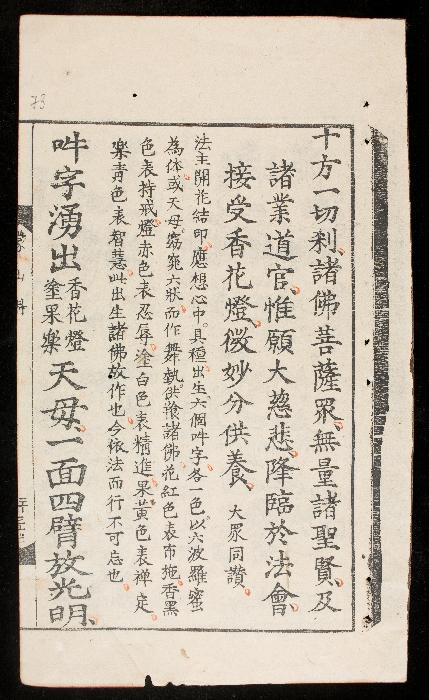 十方一切刹諸佛菩薩眾無量諸聖賢及
諸業道官惟願大慈悲降臨於法會
接受香花燈微妙分供養 大眾同讚
法主開花結印應想心中具種出生六個吽字各一色以六波羅蜜
為体或天母窈窕六狀而作舞執供飬諸佛花紅色表布施香黑
色表持戒燈赤色表忍辱塗白色表精進果黃色表禅定
樂青色表智慧叫出生諸佛故作也今依法而行不可忘也
吽字湧出香花燈塗果樂天母一面四臂放光明
73